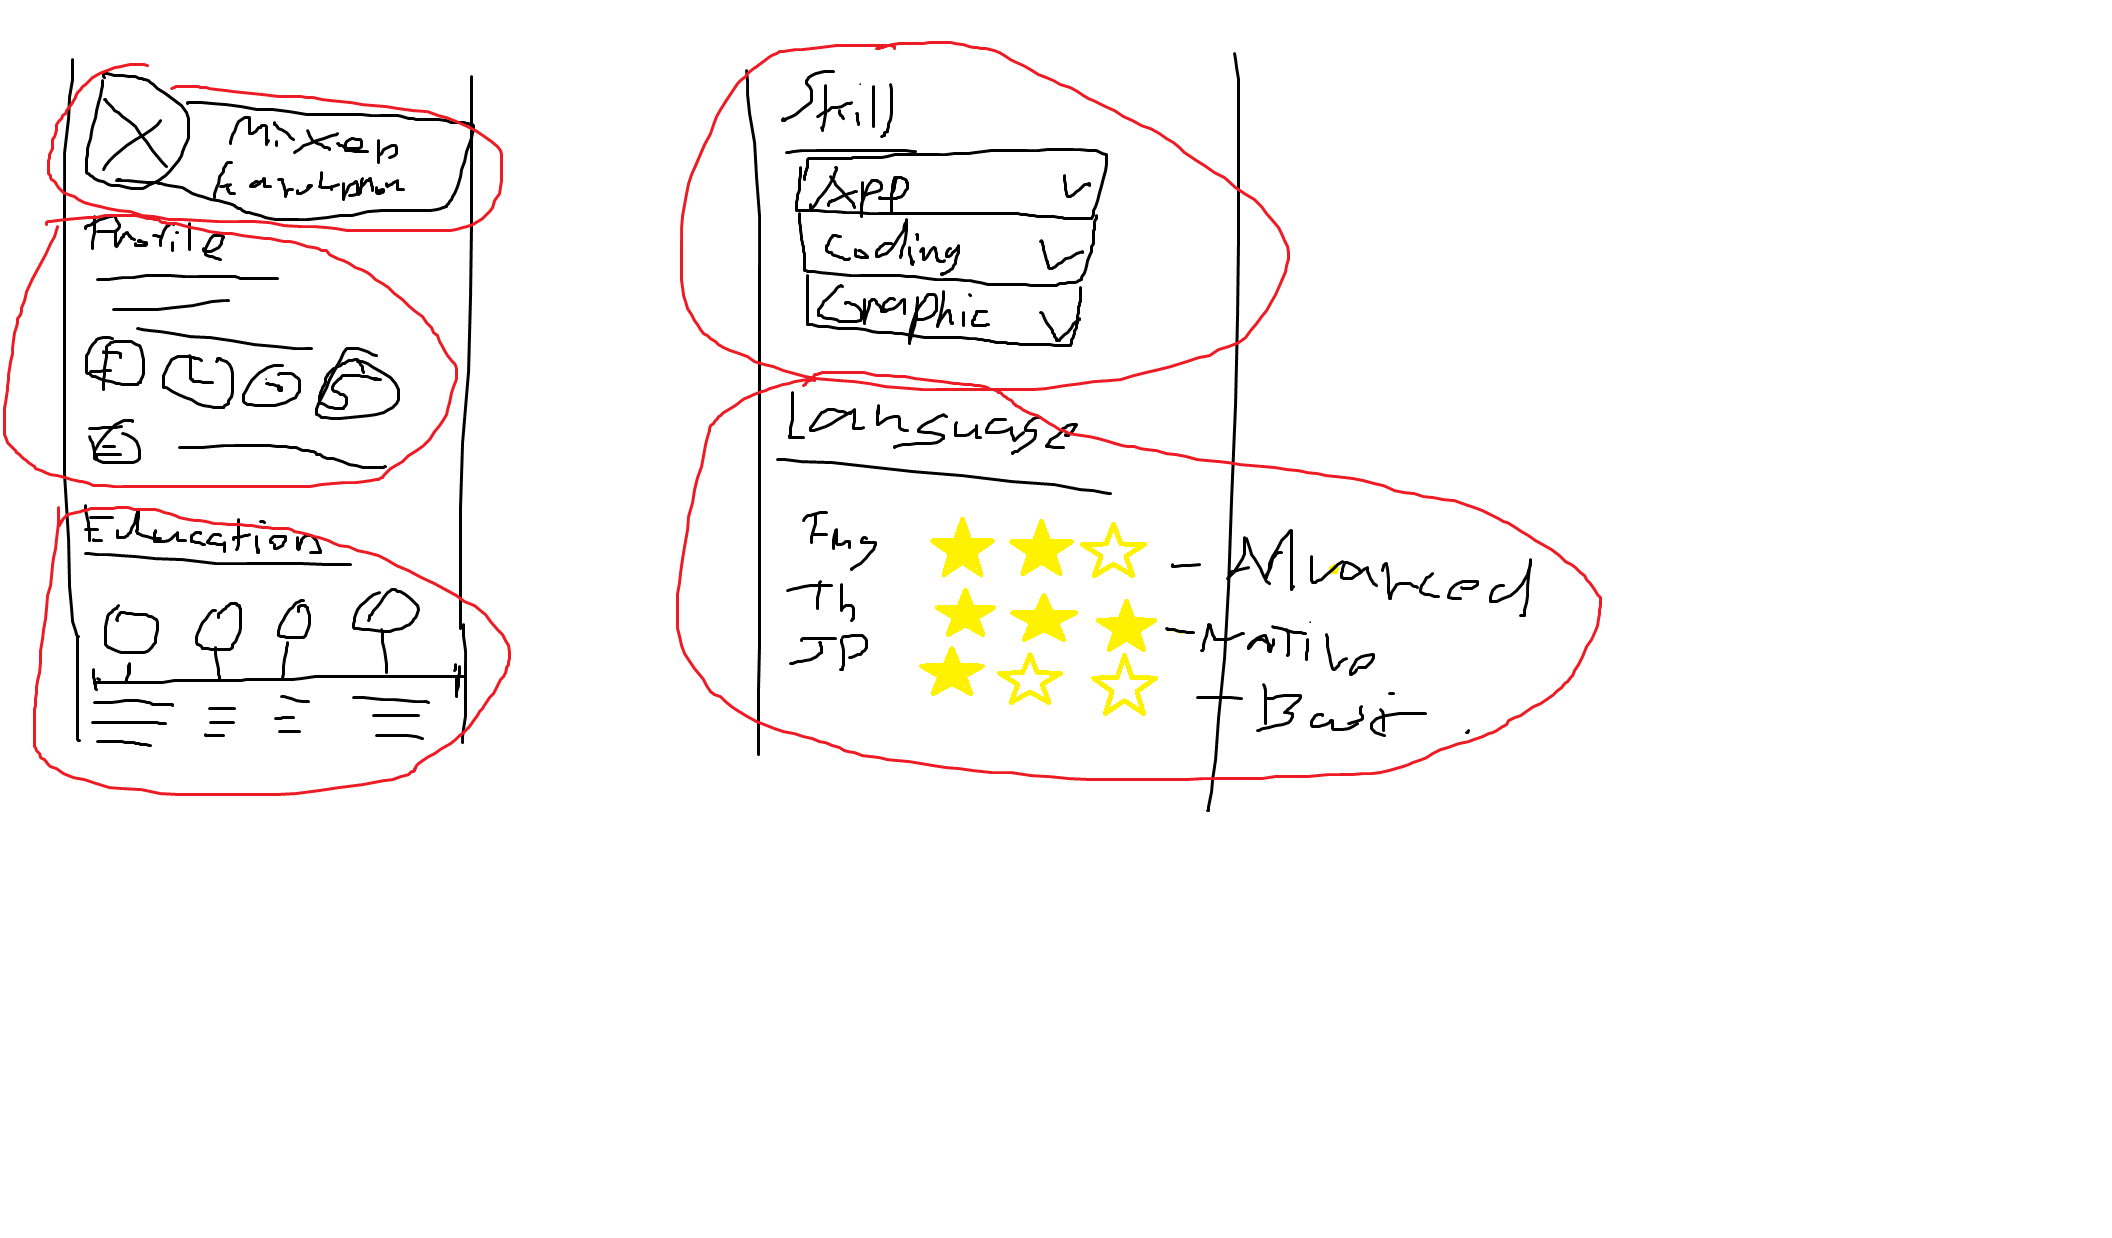 Mixen
Profile
F L G S
E
Education
Skill
App
Coding
Graphic
Language
Eng - Advanced
Th - Native
JP - Basic